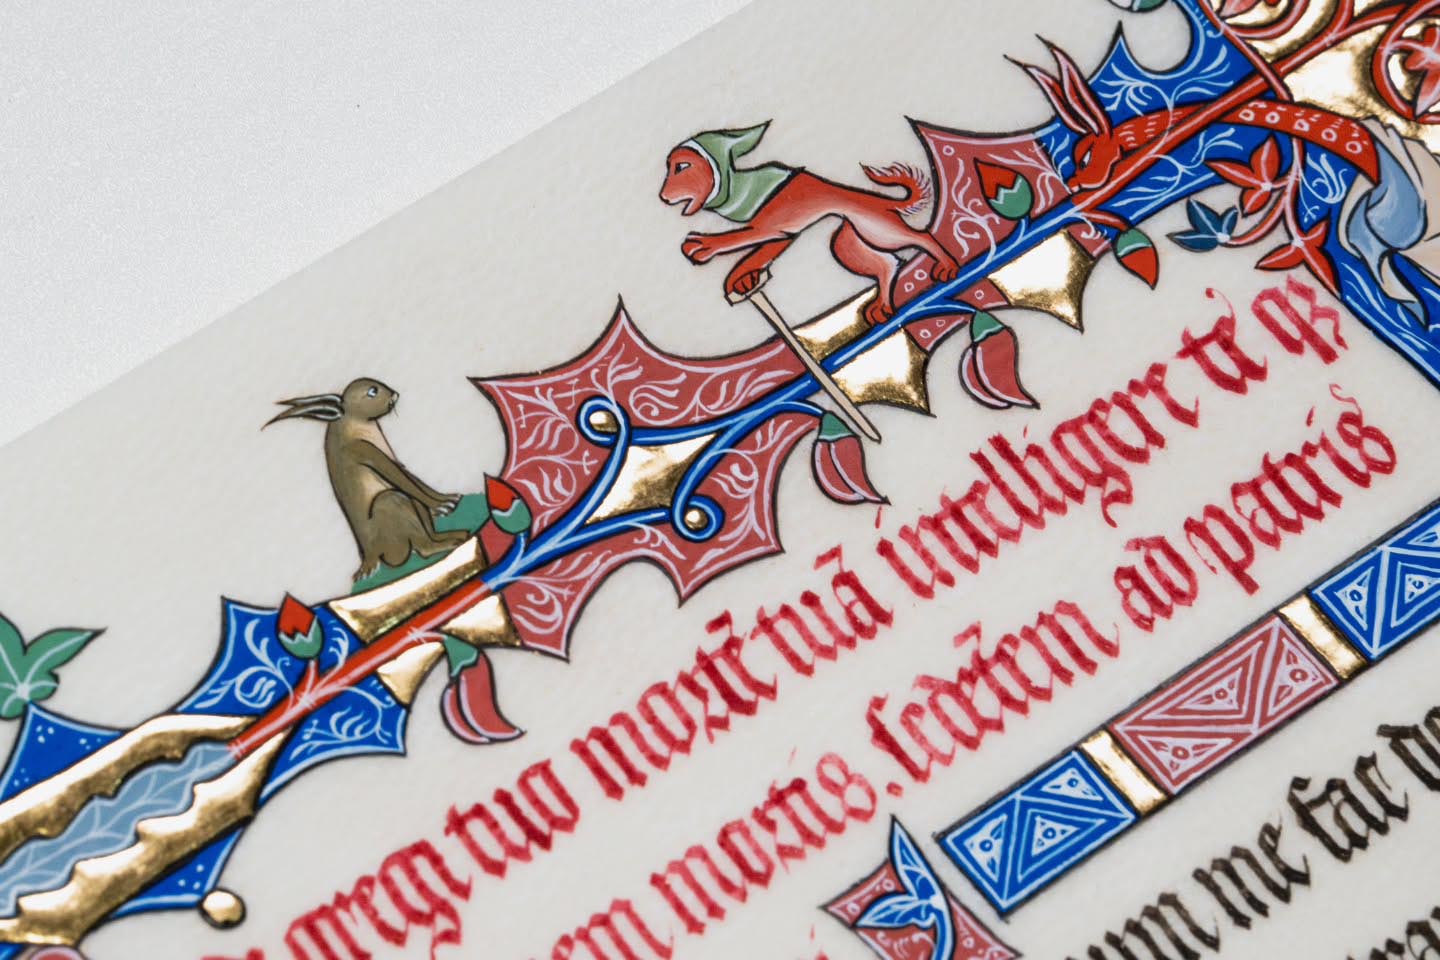 gregi tuo mortē tuā intelligere te
em mortis. sedētem ad patris
um me fac de